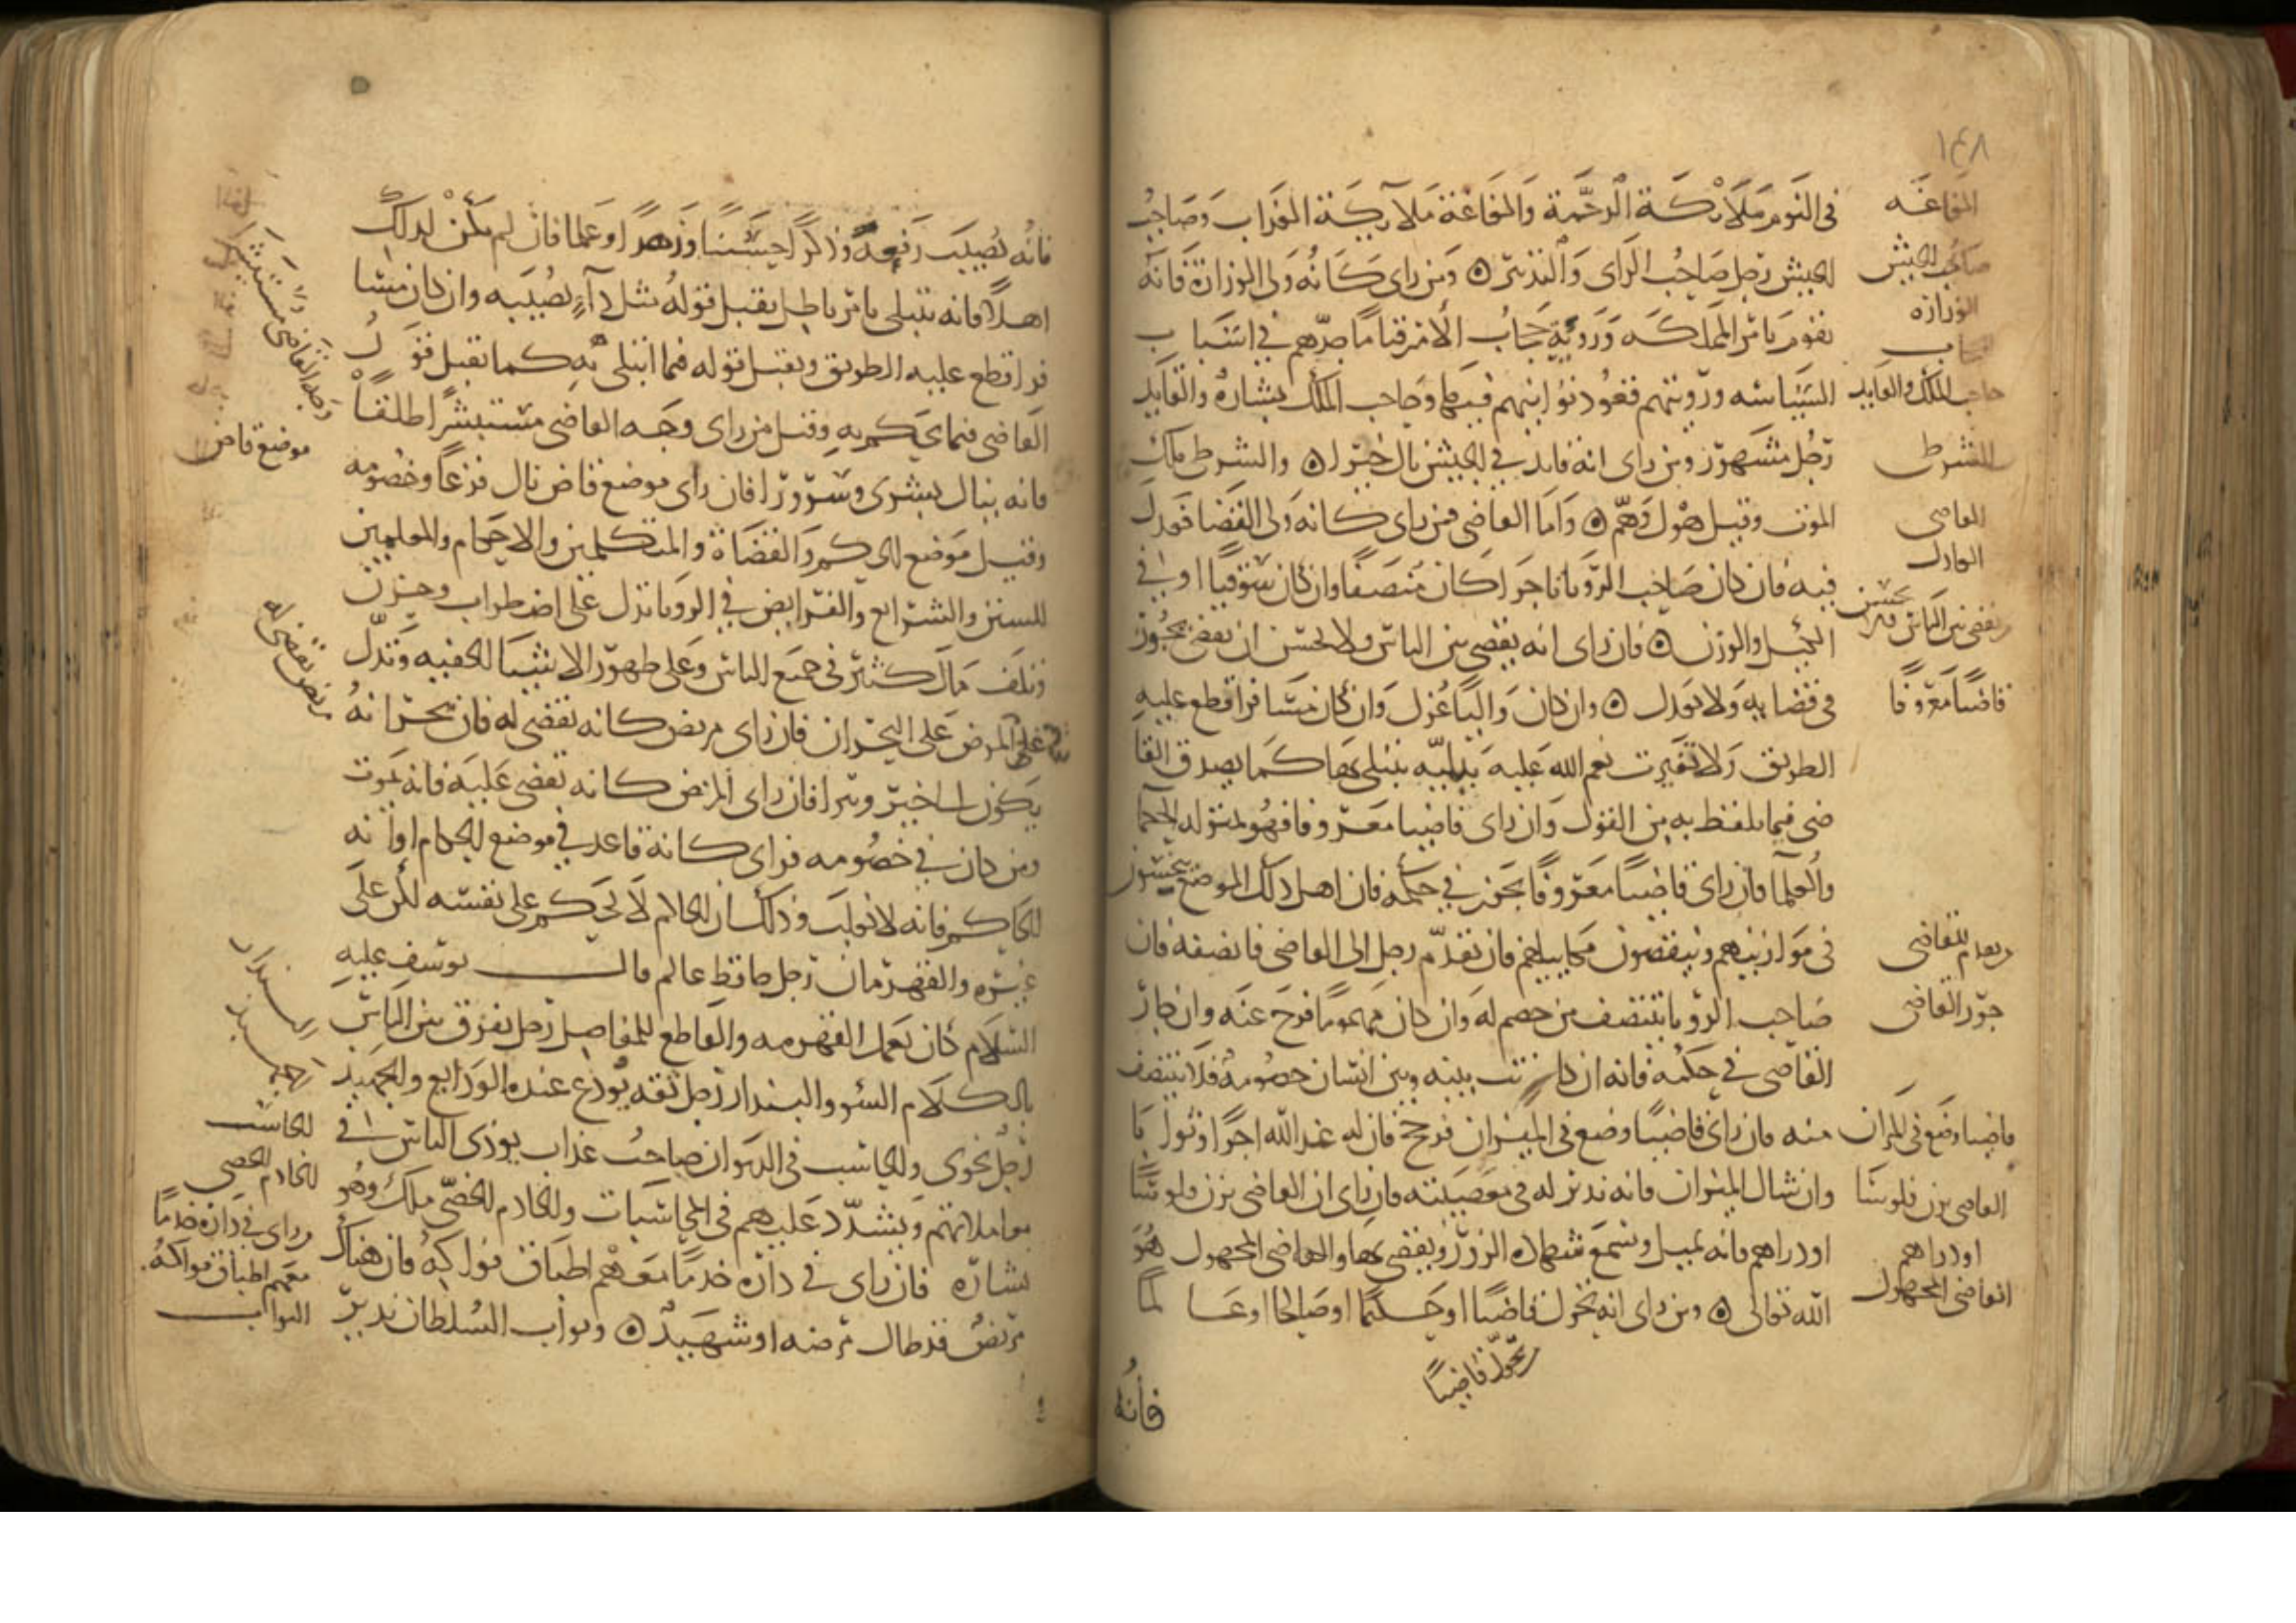 ١٤٨
في النوم ملائكة الرحمة والفاغة ملائكة العذاب وصاحب
الجيش رجل صاحب الراى والتدبير ومن راى كانه ولى الوزارة فانه
يقوم بامر المملكه ورؤية حجاب الامر قيامًا جدهم في اسباب
السياسه ورؤيتهم قعود توانيهم فيها وحاجب الملك بشارة والقايد
رجل مشهور ومن راى انه قايد في الجيش نال خيرا والشرطى ملك
الموت وقيل هول وهم واما القاضى فمن راى كانه ولى القضا فعدل
فيه فان كان صاحب الرؤيا تاجرا كان منصفا وان كان سوقيا اوفى
الكيل والوزن فان راى انه يقضى بين الناس ولا يحسن ان يقضى يجوز
في قضايه ولا يعدل وان كان واليا عزل وان كان مسافرا قطع عليه
الطريق ولا تغيرت نعم الله عليه ببليه يبتلى بها كما يصدق القا
ضى فيما يلفظ به من القول وان راى قاضيا معروفا فهو بمنزله الحكما
والعلما فان راى قاضيا معروفا يجور في حكمه فان اهل ذلك الموضع يخسرون
في موازينهم وينقصون مكاييلهم فان تقدم رجل الى القاضى فانصفه فان
صاحب الرؤيا ينتصف من خصم له وان كان مهموما فرج عنه وان جار
القاضى في حكمه فانه ان كانت بينه وبين انسان خصومة فلا ينتصف
منه فان راى قاضيا وضع في الميزان فرجح فان له عند الله اجرا وثوابا
وان شال الميزان فانه نذير له في معصيته فان راى ان القاضى يزن فلوسًا
او دراهم فانه يميل ويسمع شهادة الزور ويقضى بها والقاضى المجهول هو
الله تعالى ومن راى انه تحول قاضيا او حكيما او صالحا او عالمًا
المفاغه
صاحب الجيش
الوزاره
حجاب
حاجب الملك والقايد
الشرطى
القاضى
العادل
يقضى بين الناس
قاضيا معروفا
تقدم للقاضى
جور القاضى
قاضيا وضع في الميزان
القاضى يزن فلوسا
او دراهم
القاضى المجهول
تحول قاضيًا
فانه
فانه يصيب رفعة وذكرًا حسنا وزهدًا وعلما فان لم يكن لذلك
اهلا فانه يبتلى بامر باطل يقبل قوله مثل داء يصيبه وان كان مسا
فرا قطع عليه الطريق ويقبل قوله فيما ابتلى به كما يقبل قول
القاضى فيما يحكم به وقيل من راى وجه القاضى مستبشرا طلقًا
فانه ينال بشرى وسرورا فان راى موضع قاض نال فزعا وخصومه
وقيل موضع الحكم والقضاة والمتكلمين والاحكام والمعلمين
للسنن والشرايع والفرايض في الرويا تدل على اضطراب وحزن
وتلف مال كثير في جميع الناس وعلى ظهور الاشيا الخفيه وتدل
على المرض على البحران فان راى مريض كانه يقضى له فان بحرانه
يكون الى خير وبرا فان راى المريض كانه يقضى عليه فانه يموت
ومن كان في خصومه فراى كانه قاعد في موضع الحكام او انه
الحاكم فانه لا يغلب وذلك ان الحاكم لا يحكم على نفسه لكن على
غيره والقهرمان رجل حافظ عالم قال يوسف عليه
السلام كان يعمل القهرمه والقاطع للمفاصل رجل يفرق بين الناس
بالكلام السؤ والبندار رجل ثقه يودع عنده الودايع والجهبذ
رجل نحوى والحاسب في الديوان صاحب عذاب يوذى الناس في
معاملاتهم ويشدد عليهم في المحاسبات والخادم الخصى ملك وهو
بشاره فان راى في داره خدما معهم اطباق فواكه فان هناك
مريض قد طال مرضه او شهيد وبواب السلطان نذير
وجه القاضى مستبشرا
موضع قاض
مريض يقضى له
البندار
الجهبذ
الحاسب
الخادم الخصى
راى في داره خدما
معهم اطباق فواكه
البواب